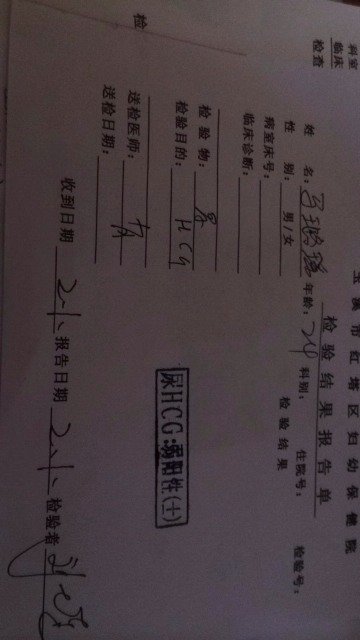 玉溪市红塔区妇幼保健院
检验结果报告单
科室
临床
检查
姓 名： 年龄：24 科别： 住院号： 检验号：
性 别：男/女 检验结果
病室床号：
临床诊断：
尿HCG:弱阳性(±)
检验物：尿
检验目的：HCG
送检医师：
送检日期：
检
收到日期 2-1、报告日期 2、1、检验者